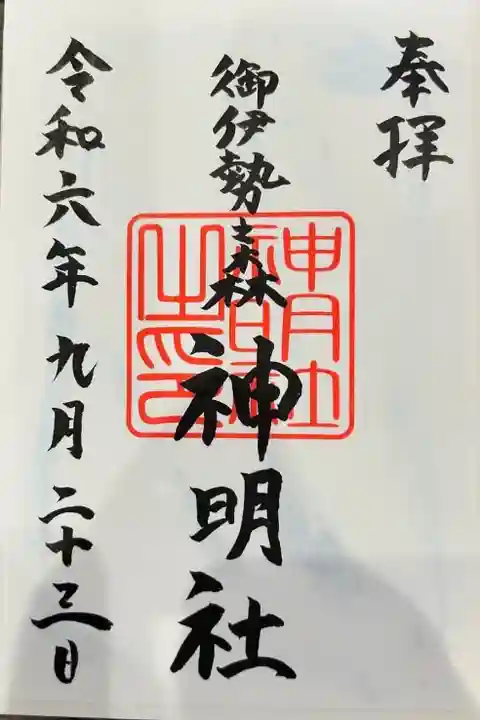 奉拝
御伊勢森
神明社
令和六年九月二十三日